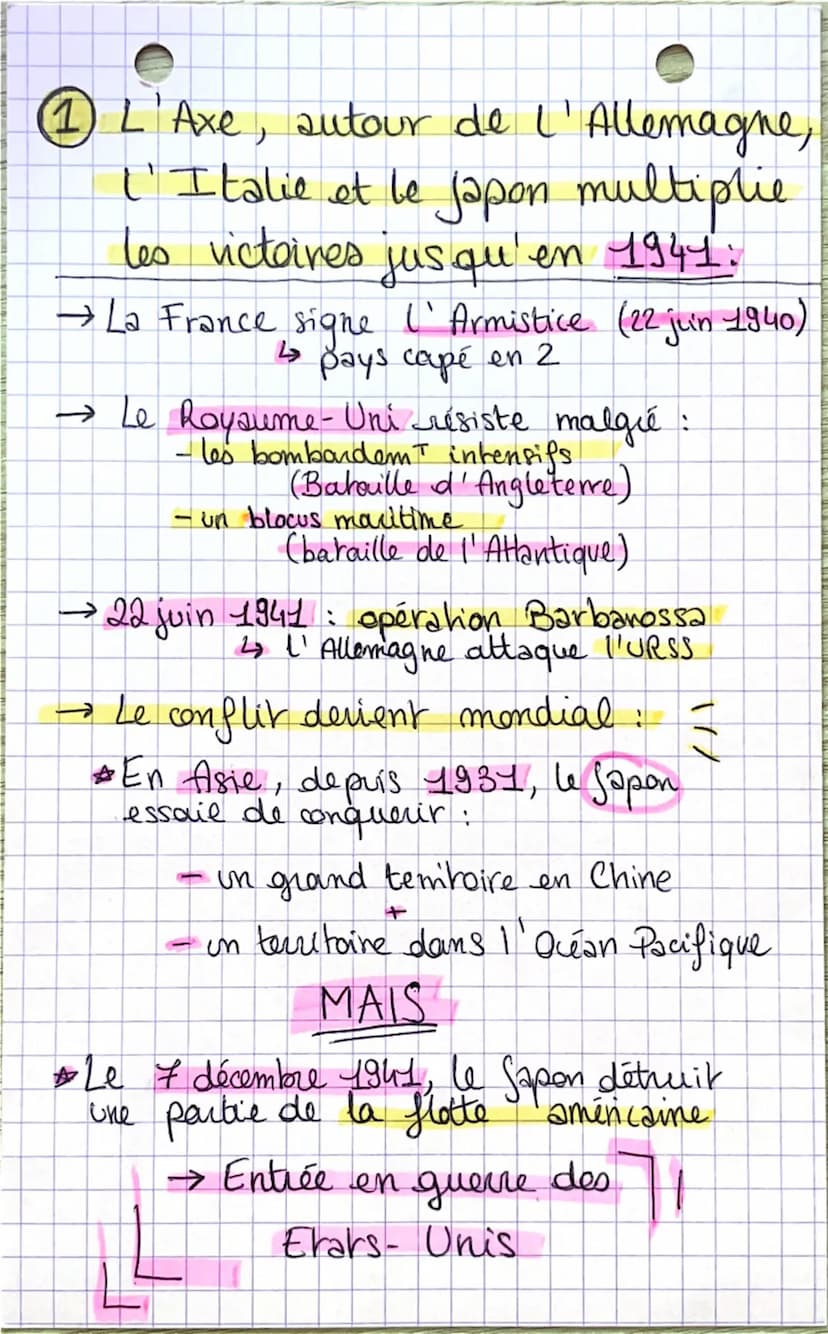 1 L'Axe, autour de l'Allemagne,
l'Italie et le Japon multiplie
les victoires jusqu'en 1941:
→ La France signe l'Armistice (22 juin 1940)
↳ pays capé en 2
→ Le Royaume-Uni résiste malgré :
- les bombardemT intensifs
(Bataille d'Angleterre)
- un blocus maritime
(bataille de l'Atlantique)
→ 22 juin 1941 : opération Barbarossa
↳ l'Allemagne attaque l'URSS
→ Le conflit devient mondial :
☆ En Asie, depuis 1931, le Japon
essaie de conquerir :
- un grand territoire en Chine
+
- un territoire dans l'Océan Pacifique
MAIS
☆ Le 7 décembre 1941, le Japon détruit
une partie de la flotte américaine
→ Entrée en guerre des
Etats-Unis